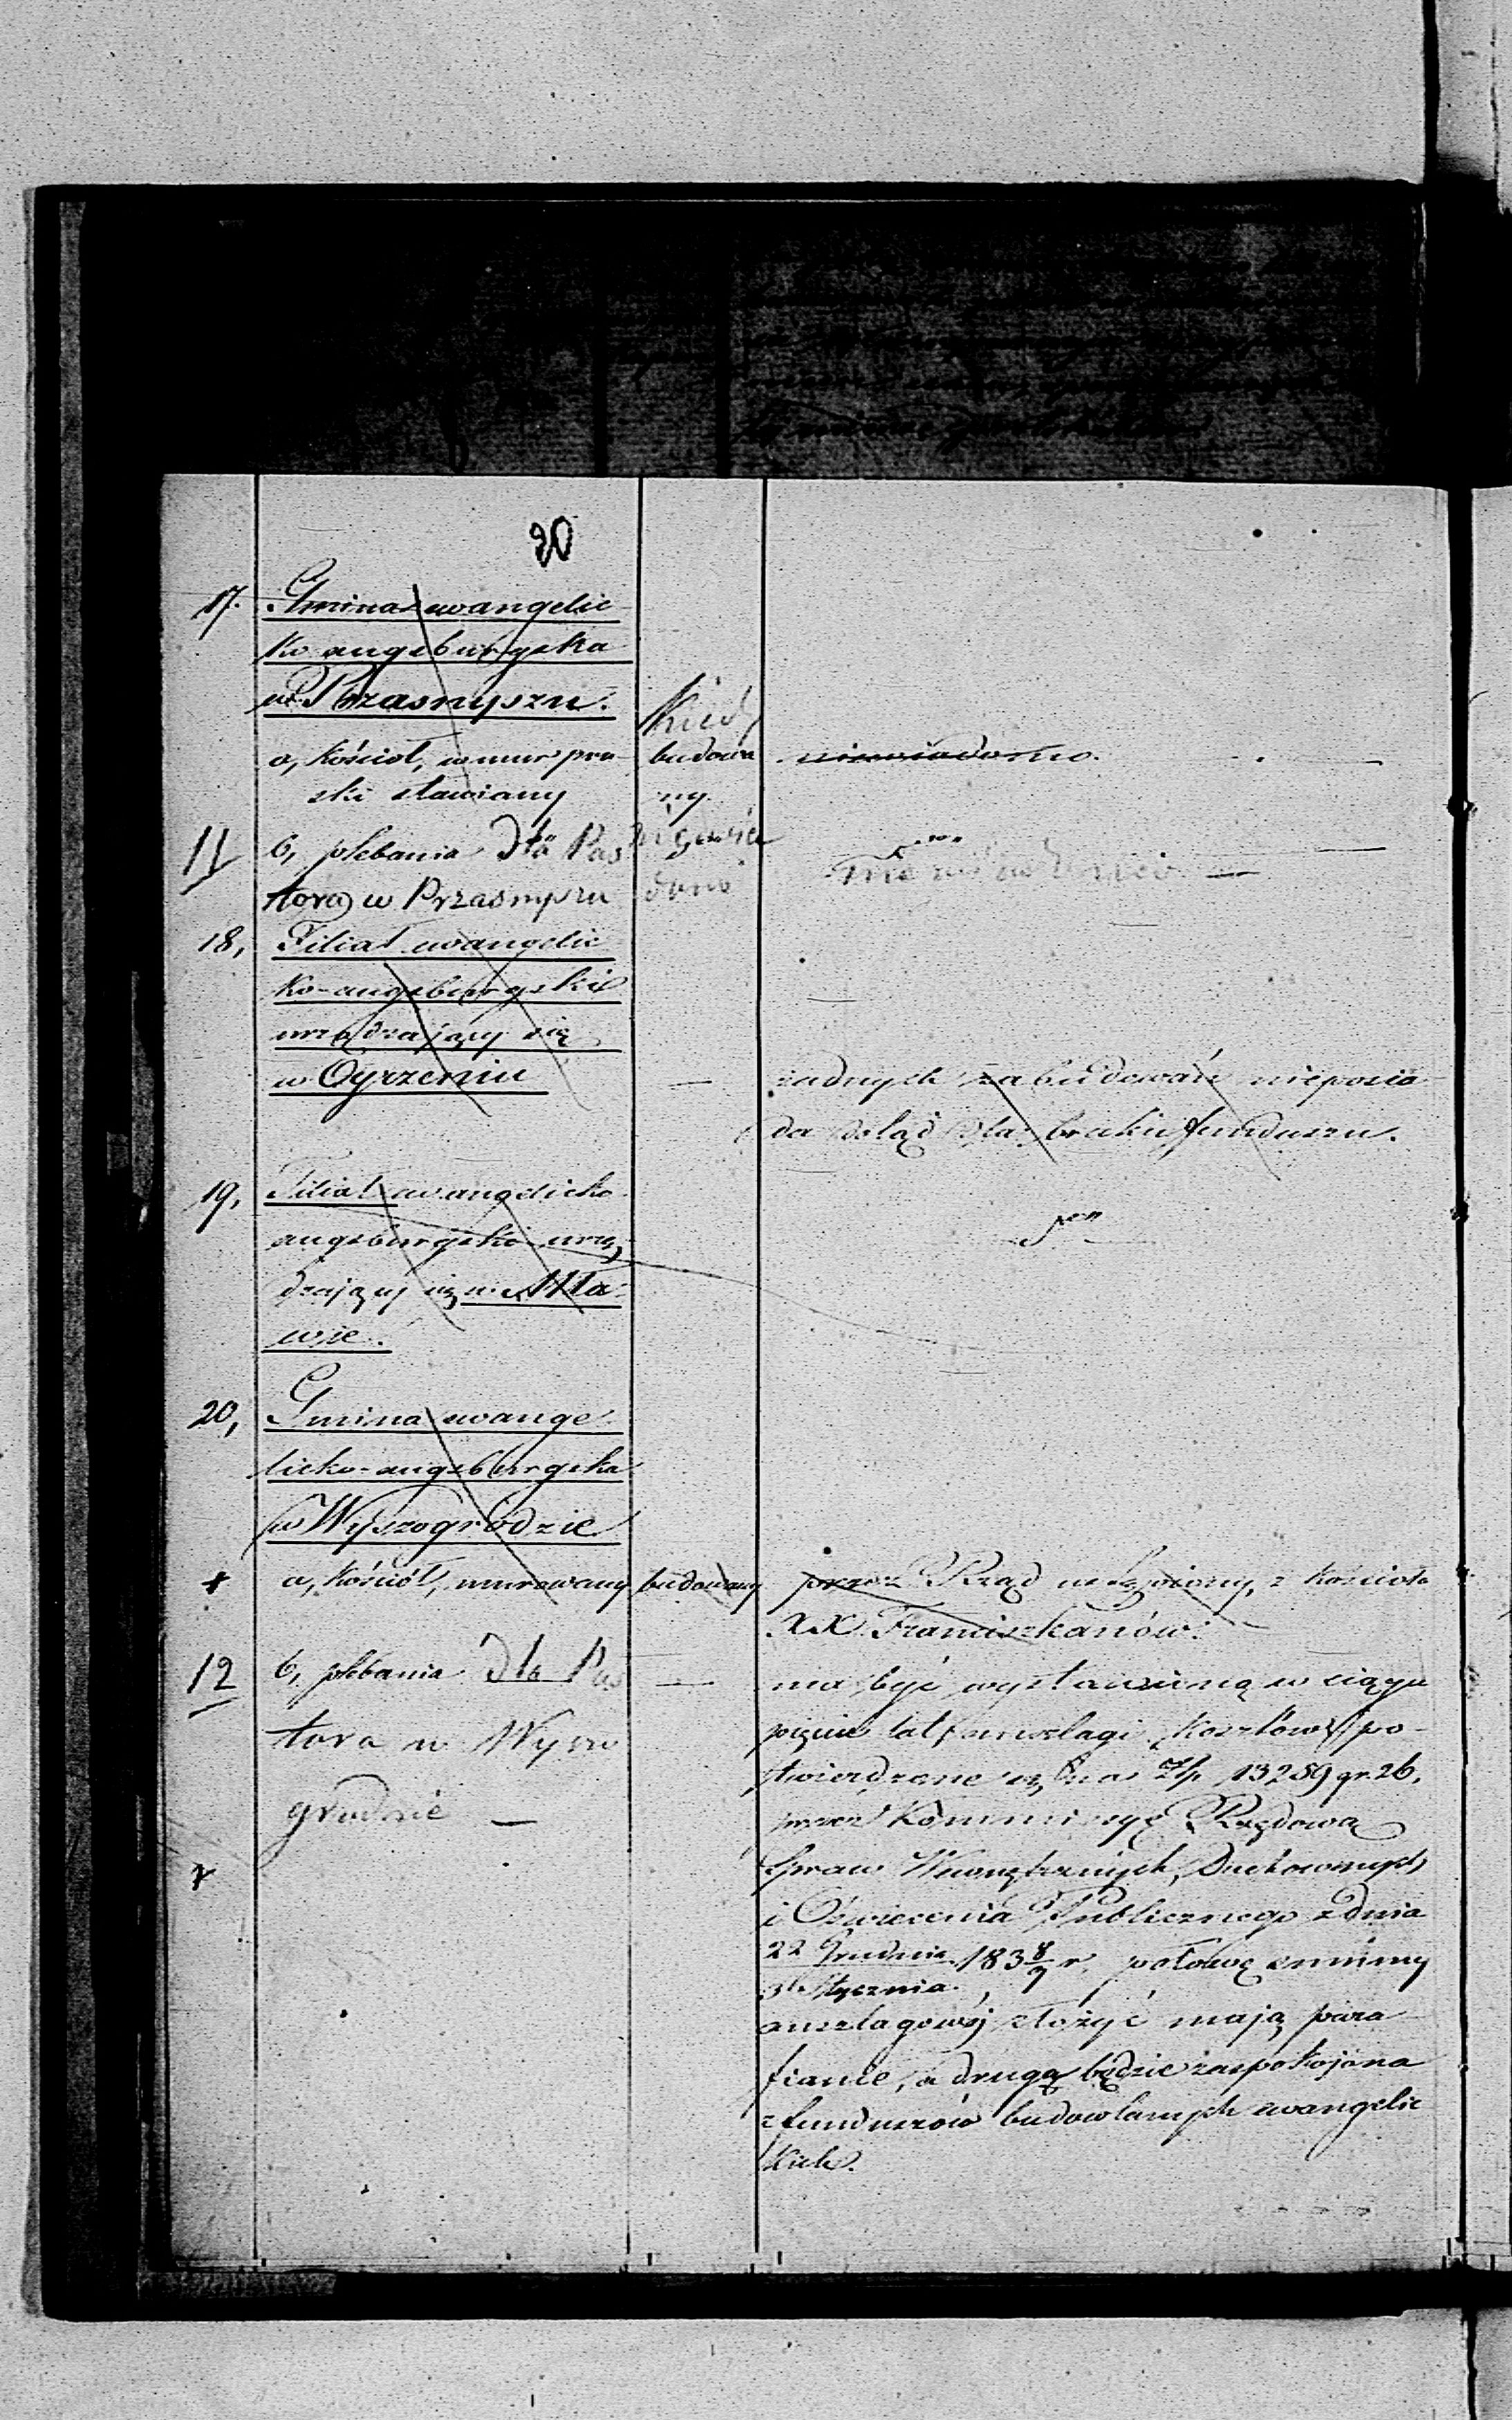 20
17. Gmina ewangelic
ko augsburgska
w Przasnyszu.
a, kościół, w mur pru budowa niewiadomo.
ski stawiany ny.
11 b, plebania dla Pas
tora w Przasnyszu
18, Filiał ewangelic
ko-augsburgski
urządzający się
w Ogrzeniu — żadnych zabudowań nieposia
da dotąd dla braku funduszu.
19, Filiał ewangelicko
augsburgski urzą
dzający się w Mła
wie.
20, Gmina ewange
licko-augsburgska
w Wyszogrodzie
a, kościół, murowany budowany przez Rząd z kościoła
XX. Franciszkanów.
12 b, plebania dla Pas — ma być wystawioną w ciągu
tora w Wyszo pięciu lat anszlagi kosztów po-
twierdzone są na Złp 13259 gr. 26,
grodzie — przez Kommissyę Rządową
Spraw Wewnętrznych, Duchownych
i Oświecenia Publicznego z dnia
22 Grudnia 183 8/9 r. połowę summy
3 Stycznia
anszlagowej złożyć mają para
fianie, a druga będzie zaspokojona
z funduszów budowlanych ewangelic
kich.